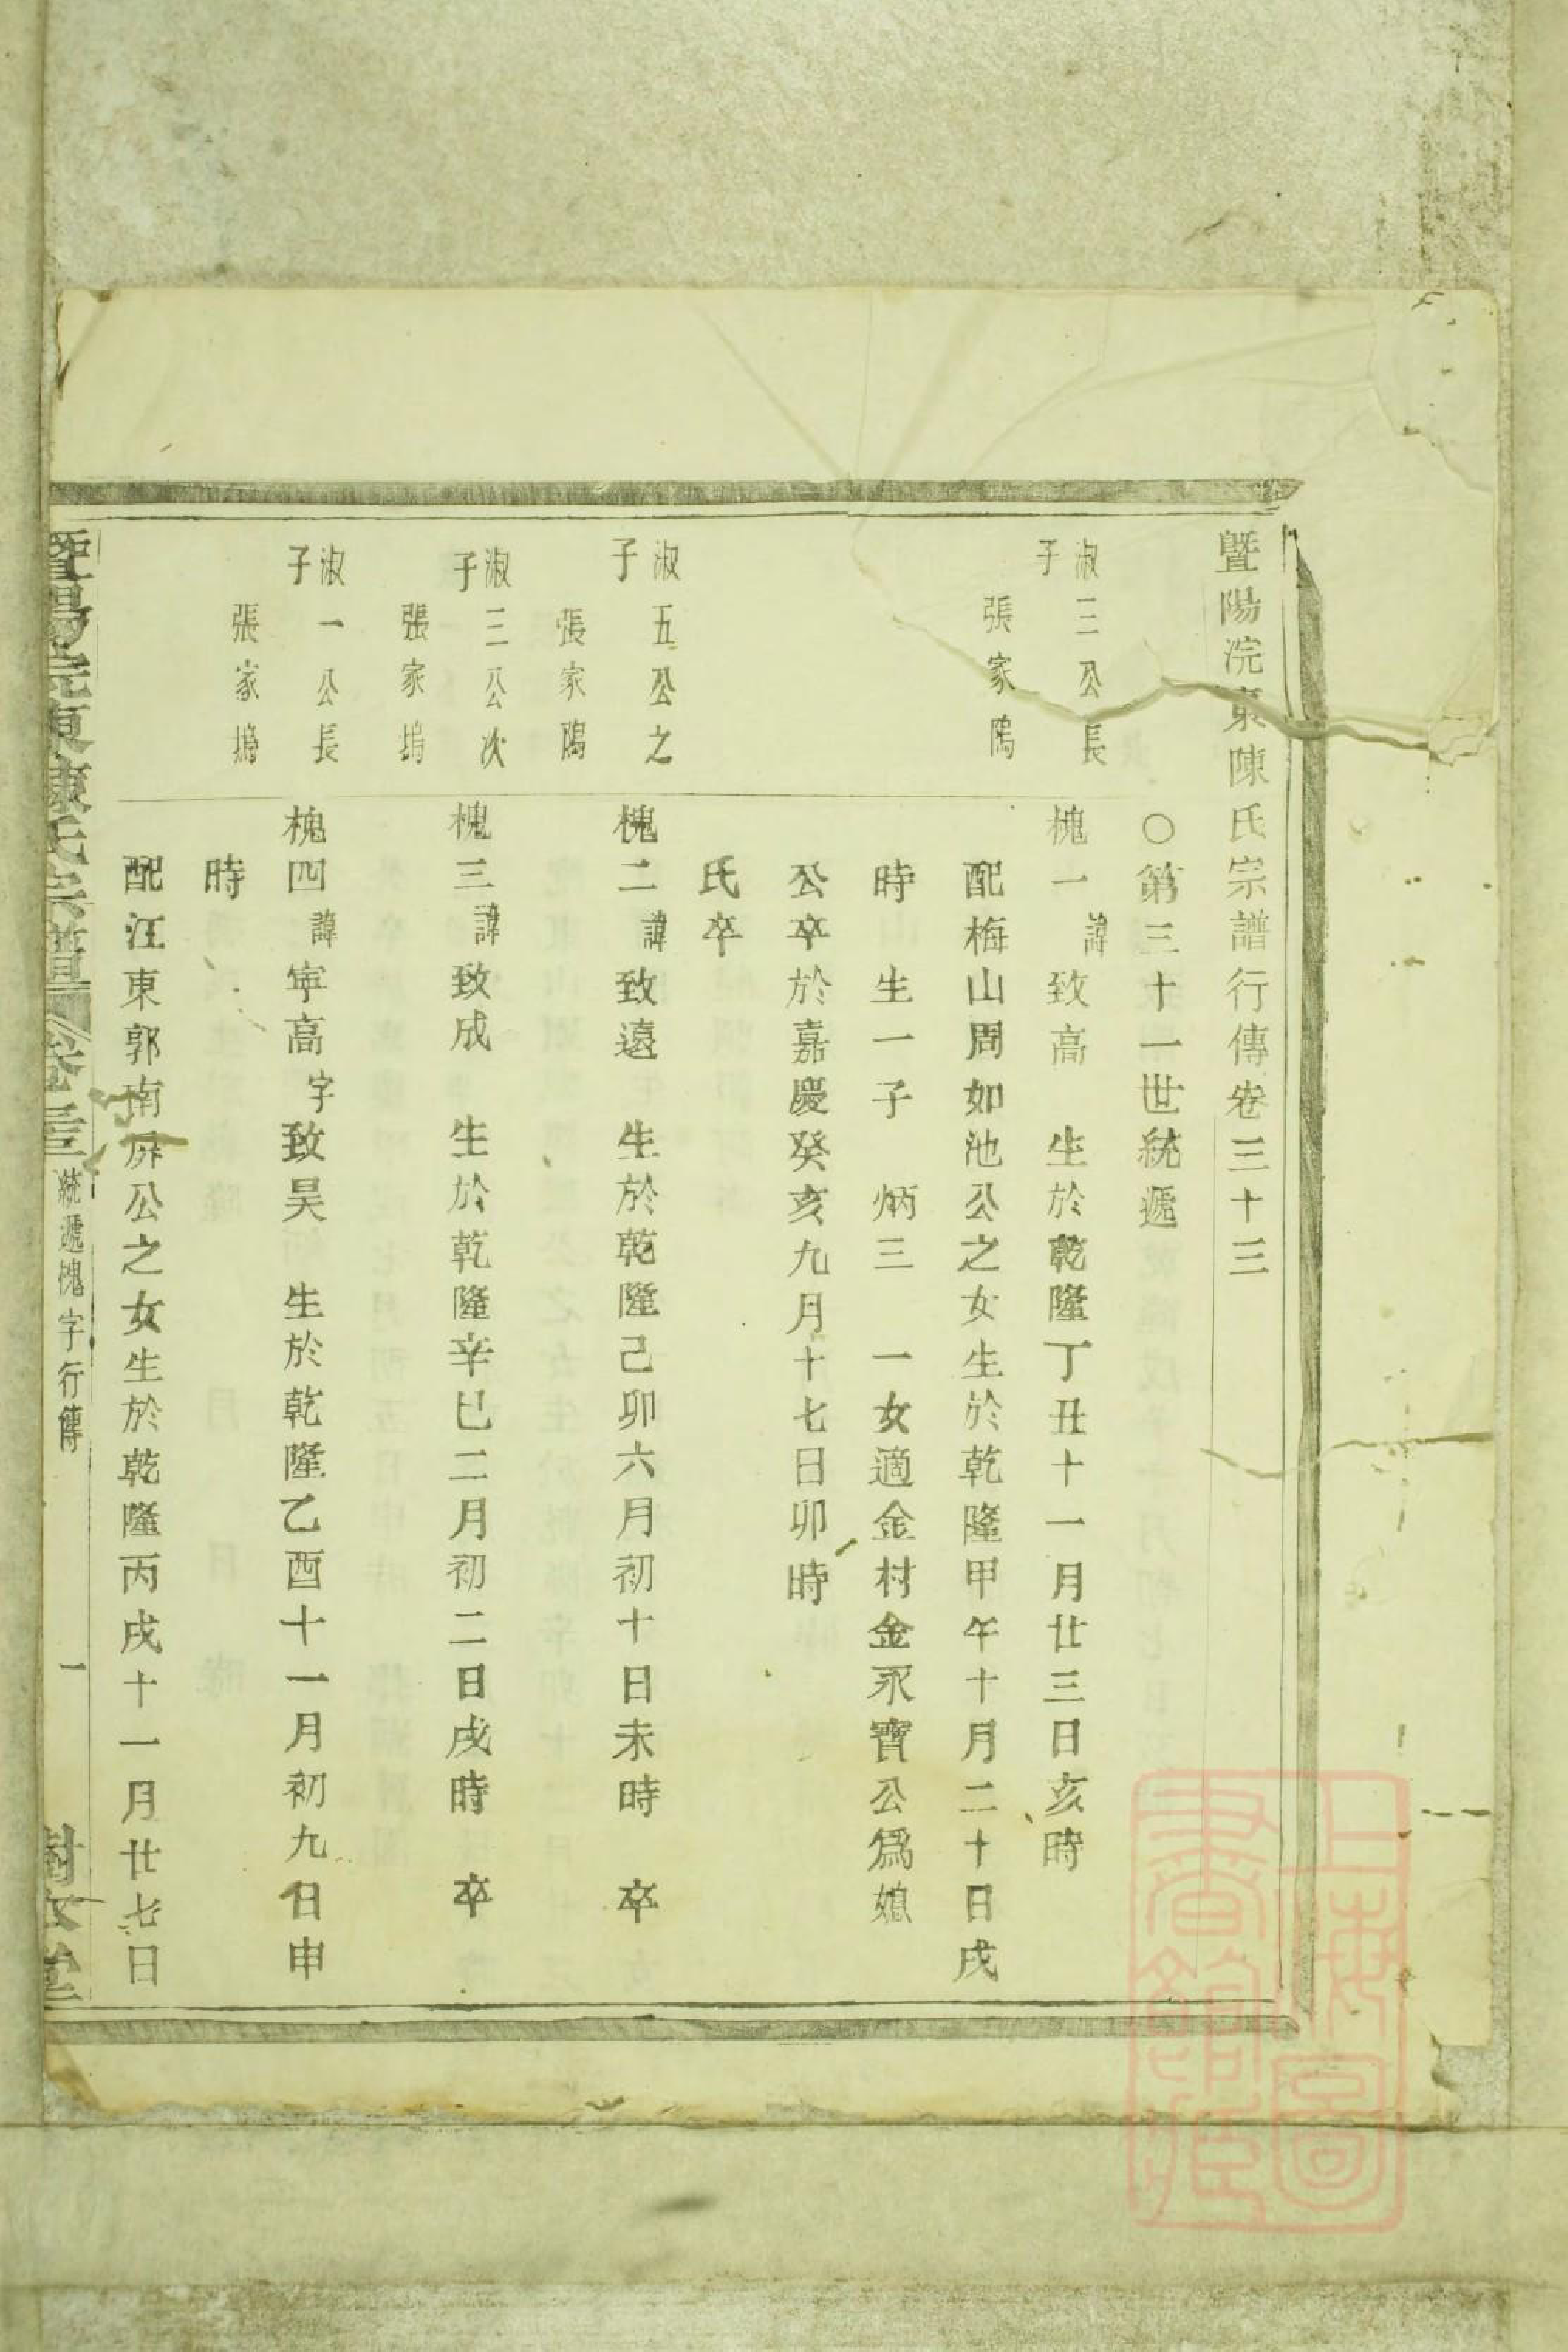 暨陽浣東陳氏宗譜行傳卷三十三
○第三十一世統遞
淑三公長
子
張家隖
槐一 諱 致高 生於乾隆丁丑十一月廿三日亥時
配梅山周如池公之女生於乾隆甲午十月二十日戌
時 生一子 炳三 一女適金村金永寶公爲媳
公卒於嘉慶癸亥九月十七日卯時
氏卒
淑五公之
子
張家隖
槐二 諱 致遠 生於乾隆己卯六月初十日未時 卒
淑三公次
子
張家塢
槐三 諱 致成 生於乾隆辛巳二月初二日戌時 卒
淑一公長
子
張家塢
槐四 諱 寧高 字 致昊 生於乾隆乙酉十一月初九日申
時
配汪東郭南屏公之女生於乾隆丙戌十一月廿七日
暨陽浣東陳氏宗譜 卷三 統遞槐字行傳 一
上海圖
書館藏